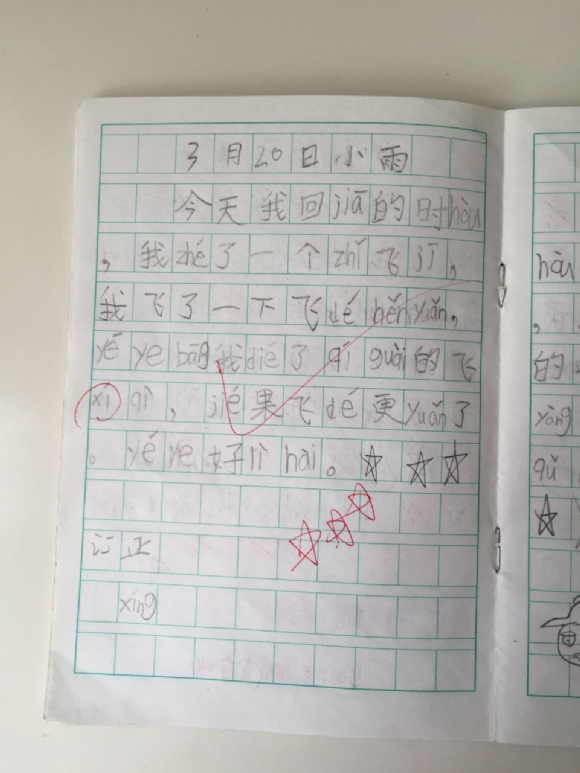 3月20日小雨
今天我回jiā的时hòu
，我zhé了一个zhǐ飞jī，
我飞了一下飞dé hěn yuǎn，
yé ye bāng我dié了qí guài的飞
xī qì，jié果飞dé更yuǎn了
。yé ye好lì hài。☆☆☆
订正
xíng
hòu
，
的
yòng
qǔ